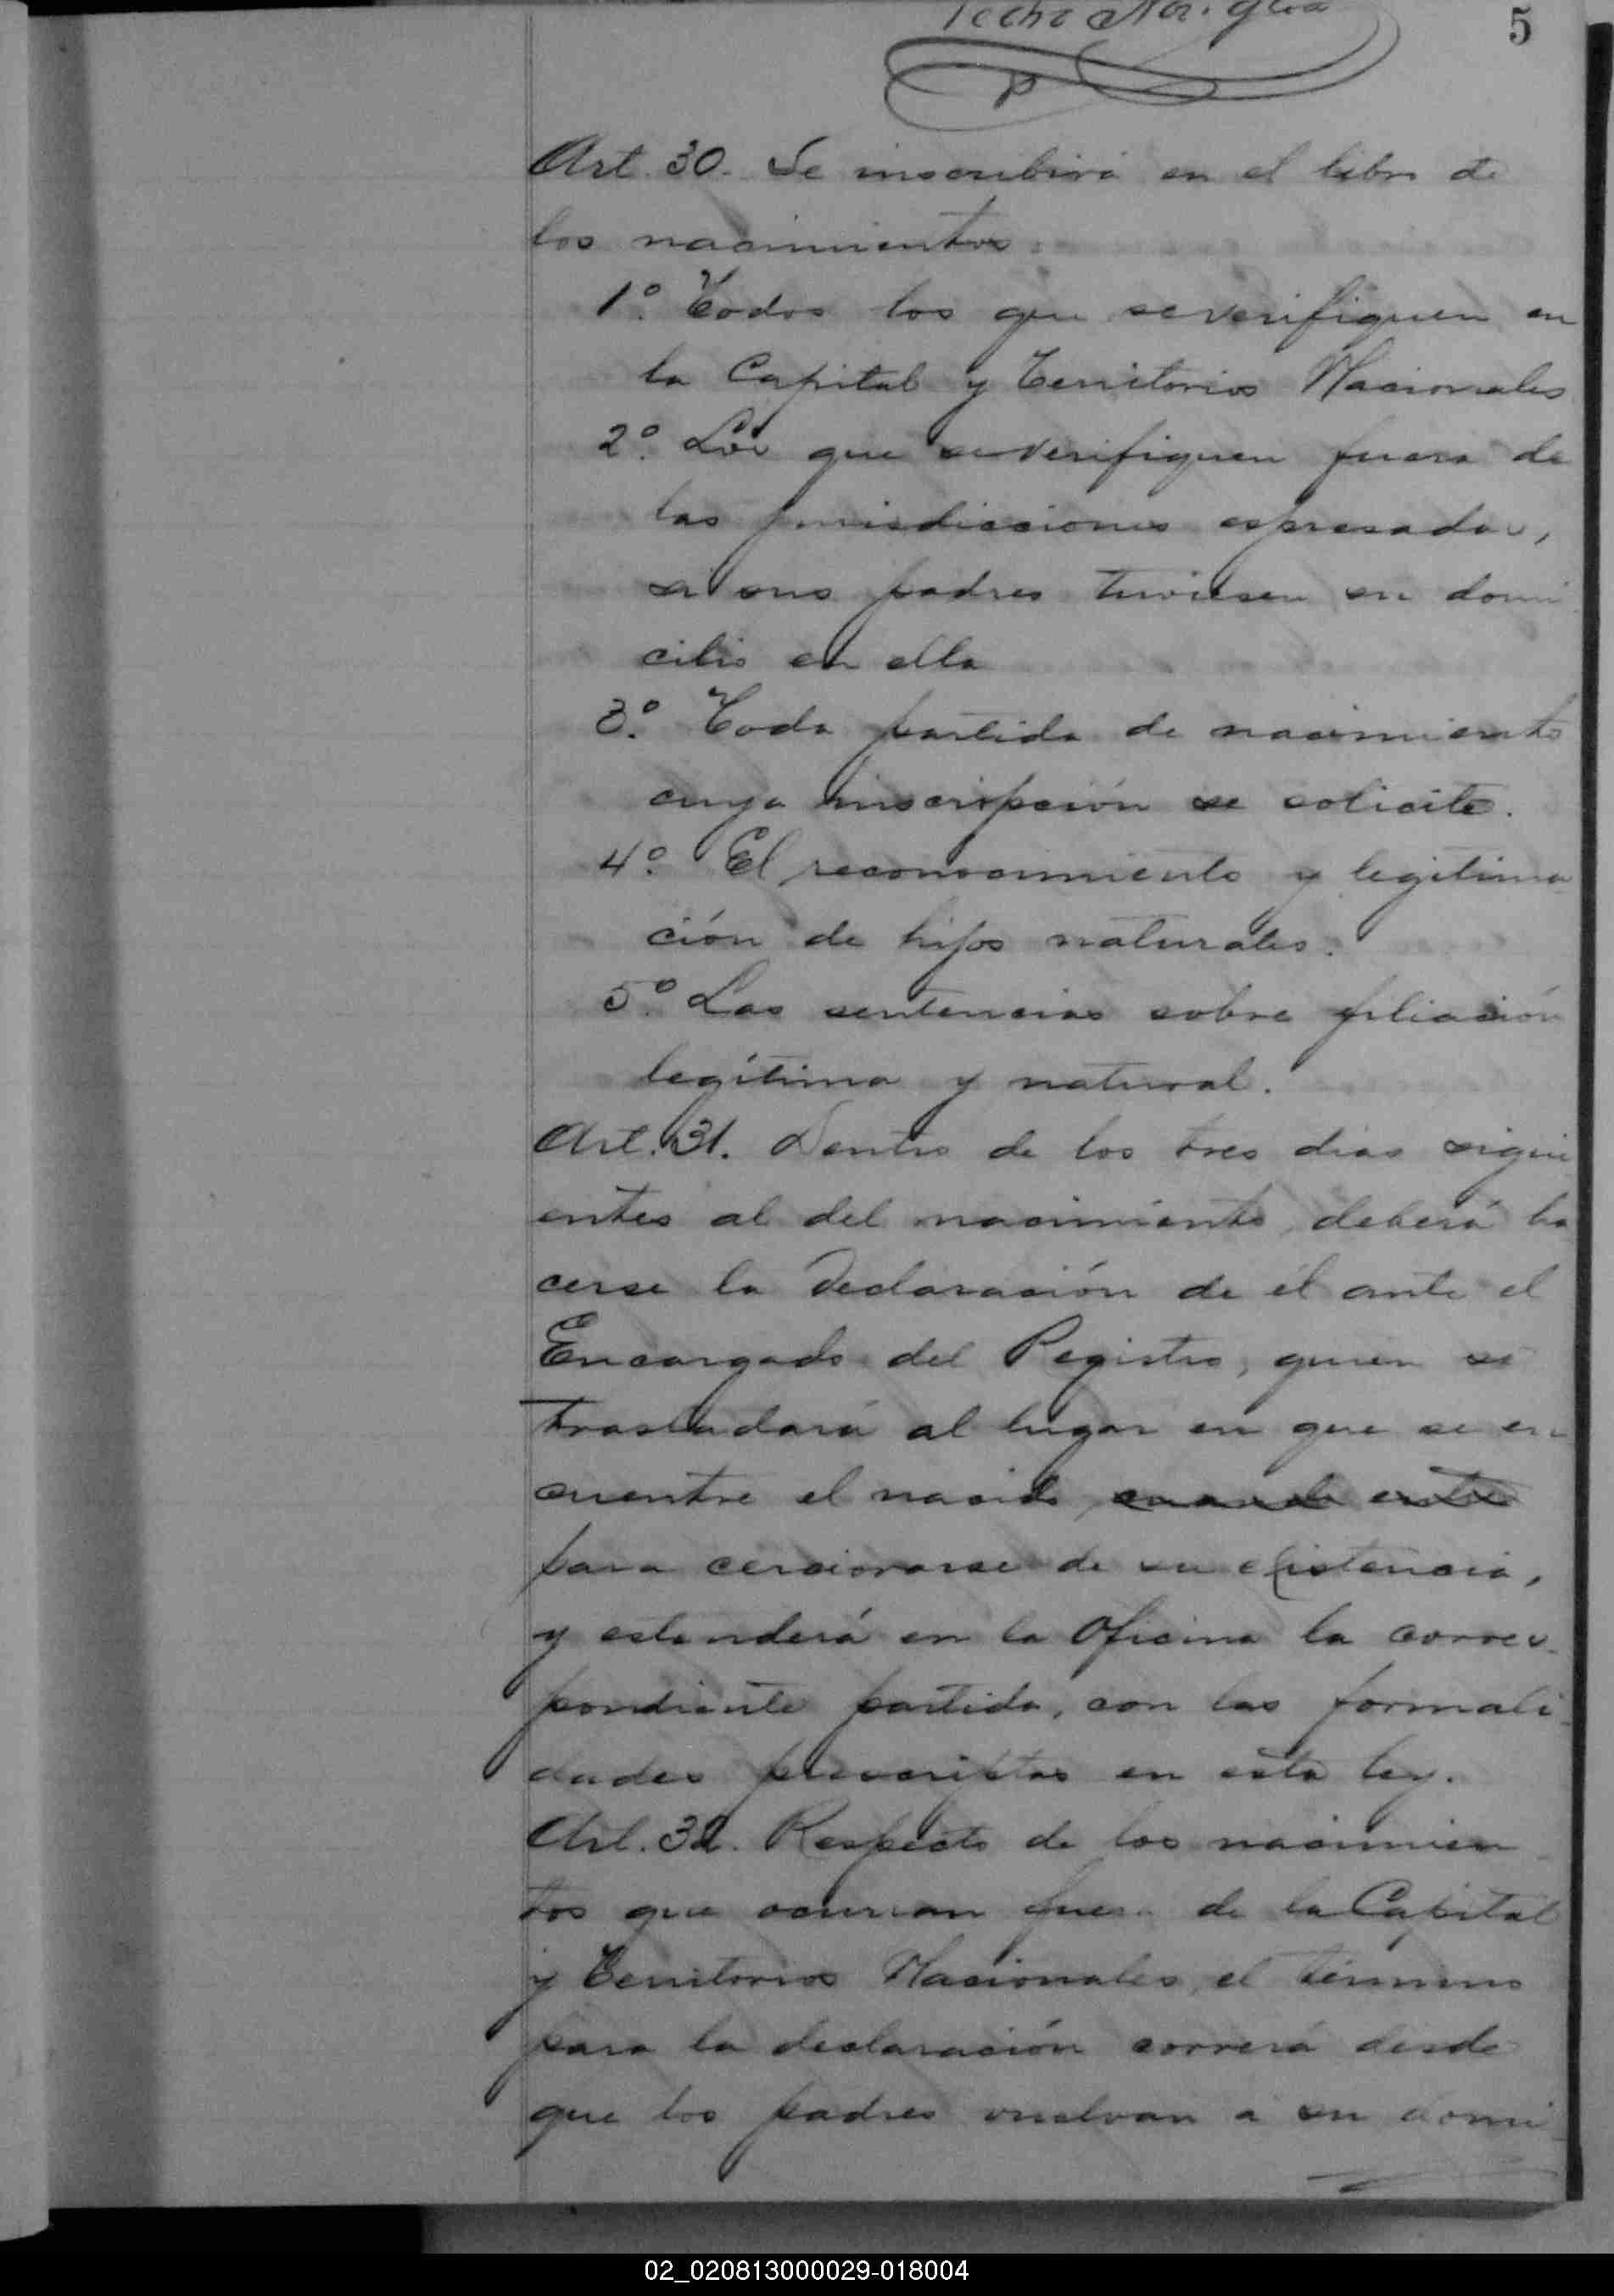 5
Art. 30. Se inscribirá en el libro de
los nacimientos:
1º. Todos los que se verifiquen en
la Capital y Territorios Nacionales
2º. Los que se verifiquen fuera de
las jurisdicciones espresadas,
si sus padres tuviesen su domi
cilio en ella
3º. Toda partida de nacimiento
cuya inscripción se solicite.
4º. El reconocimiento y legitima
ción de hijos naturales.
5º. Las sentencias sobre filiación
legítima y natural.
Art. 31. Dentro de los tres dias sigui
entes al del nacimiento, deberá ha
cerse la declaración de él ante el
Encargado del Registro, quien se
trasladará al lugar en que se en
cuentre el nacido
para cerciorarse de su existencia,
y estenderá en la Oficina la corres-
pondiente partida, con las formali
dades prescriptas en esta ley.
Art. 32. Respecto de los nacimien
tos que ocurran fuera de la Capital
y Territorios Nacionales, el término
para la declaración correrá desde
que los padres vuelvan a su domi
02_020813000029-018004